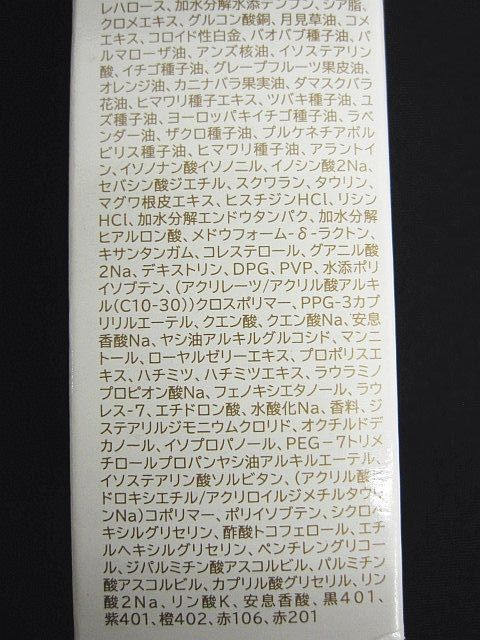 レハロース、加水分解水添デンプン、シア脂、
クロメエキス、グルコン酸銅、月見草油、コメ
エキス、コロイド性白金、バオバブ種子油、パ
ルマローザ油、アンズ核油、イソステアリン
酸、イチゴ種子油、グレープフルーツ果皮油、
オレンジ油、カニナバラ果実油、ダマスクバラ
花油、ヒマワリ種子エキス、ツバキ種子油、ユ
ズ種子油、ヨーロッパキイチゴ種子油、ラベ
ンダー油、ザクロ種子油、プルケネチアボル
ビリス種子油、ヒマワリ種子油、アラントイ
ン、イソノナン酸イソノニル、イノシン酸2Na、
セバシン酸ジエチル、スクワラン、タウリン、
マグワ根皮エキス、ヒスチジンHCl、リシン
HCl、加水分解エンドウタンパク、加水分解
ヒアルロン酸、メドウフォーム-δ-ラクトン、
キサンタンガム、コレステロール、グアニル酸
2Na、デキストリン、DPG、PVP、水添ポリ
イソブテン、（アクリレーツ/アクリル酸アルキ
ル(C10-30)）クロスポリマー、PPG-3カプ
リリルエーテル、クエン酸、クエン酸Na、安息
香酸Na、ヤシ油アルキルグルコシド、マンニ
トール、ローヤルゼリーエキス、プロポリスエ
キス、ハチミツ、ハチミツエキス、ラウラミノ
プロピオン酸Na、フェノキシエタノール、ラウ
レス-7、エチドロン酸、水酸化Na、香料、ジ
ステアリルジモニウムクロリド、オクチルドデ
カノール、イソプロパノール、PEG-7トリメ
チロールプロパンヤシ油アルキルエーテル、
イソステアリン酸ソルビタン、（アクリル酸ヒ
ドロキシエチル/アクリロイルジメチルタウリ
ンNa）コポリマー、ポリイソブテン、シクロヘ
キシルグリセリン、酢酸トコフェロール、エチ
ルヘキシルグリセリン、ペンチレングリコー
ル、ジパルミチン酸アスコルビル、パルミチン
酸アスコルビル、カプリル酸グリセリル、リン
酸2Na、リン酸K、安息香酸、黒401、
紫401、橙402、赤106、赤201